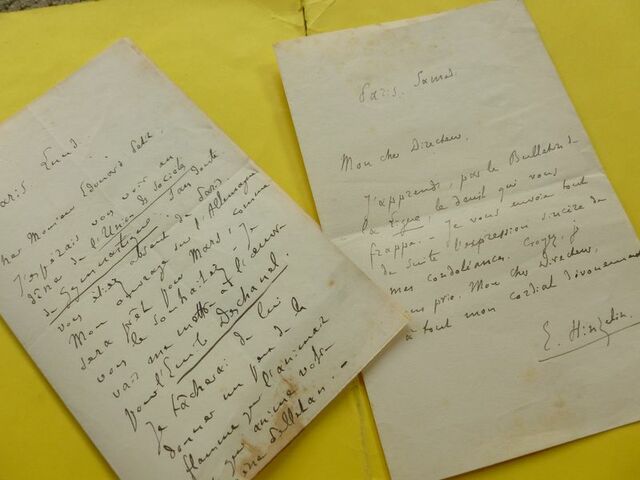 Paris Lundi
Cher Monsieur Edouard Petit.
J'espérais vous voir au
dîner de l'Union des Sociétés
de Gymnastique. Sans doute
vous étiez absent de Paris
Mon ouvrage sur l'Allemagne
sera prêt pour Mars, comme
vous le souhaitez. - Je
vais me mettre à l'œuvre
pour l'Emile Deschanel.
Je tâcherai de lui
donner un peu de la
flamme qui l'animait
et qui anime votre
Pelletan. -
Paris. Samedi.
Mon cher Directeur.
J'apprends, par le Bulletin de
la Ligue, le deuil qui vous
frappe. - Je vous envoie tout
de suite l'expression sincère de
mes condoléances. Croyez, je
vous prie, Mon cher Directeur,
à tout mon cordial dévouement
E. Hinzelin